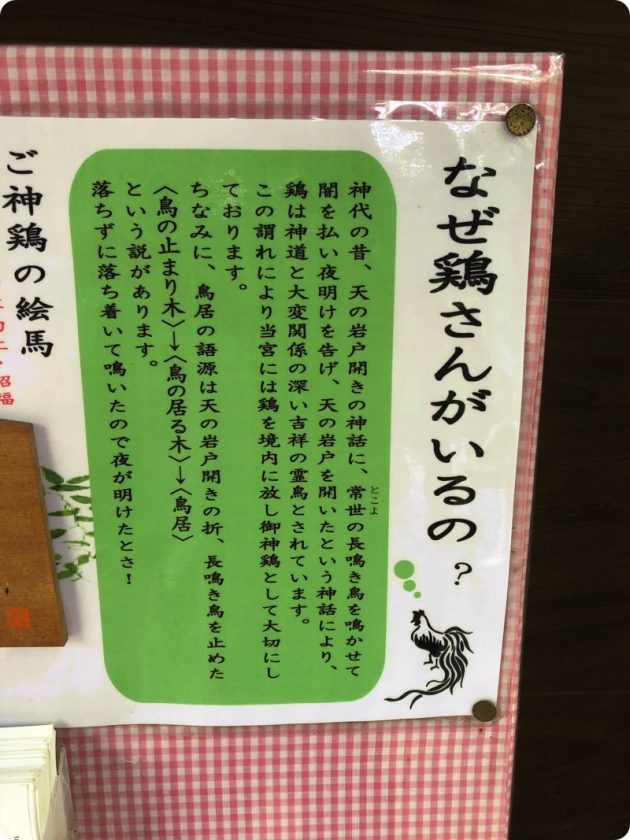 なぜ鶏さんがいるの?
神代の昔、天の岩戸開きの神話に、常世の長鳴き鳥を鳴かせて
とこよ
闇を払い夜明けを告げ、天の岩戸を開いたという神話により、
鶏は神道と大変関係の深い吉祥の霊鳥とされています。
この謂れにより当宮には鶏を境内に放し御神鶏として大切にし
ております。
ちなみに、鳥居の語源は天の岩戸開きの折、長鳴き鳥を止めた
〈鳥の止まり木〉→〈鳥の居る木〉→〈鳥居〉
という説があります。
落ちずに落ち着いて鳴いたので夜が明けたとさ!
ご神鶏の絵馬
招福